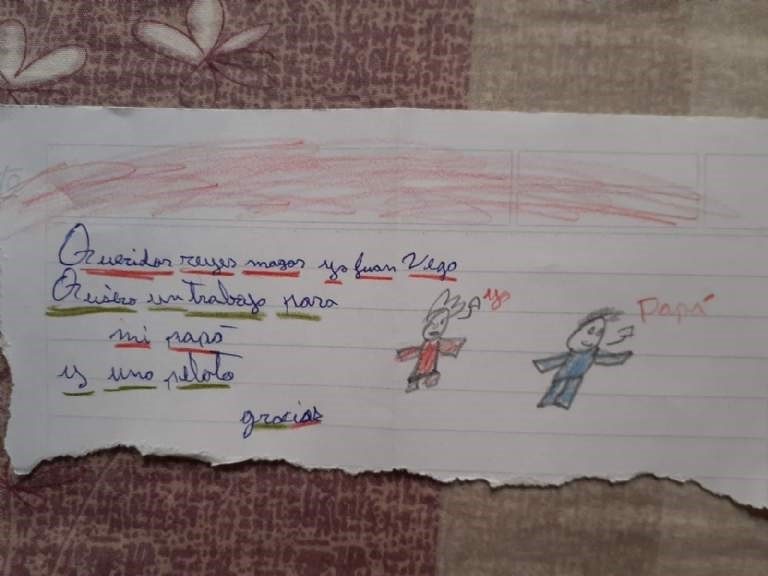 Queridos reyes magos yo Juan Vega
Quiero un trabajo para
mi papá
y una pelota
gracias
yo
Papá